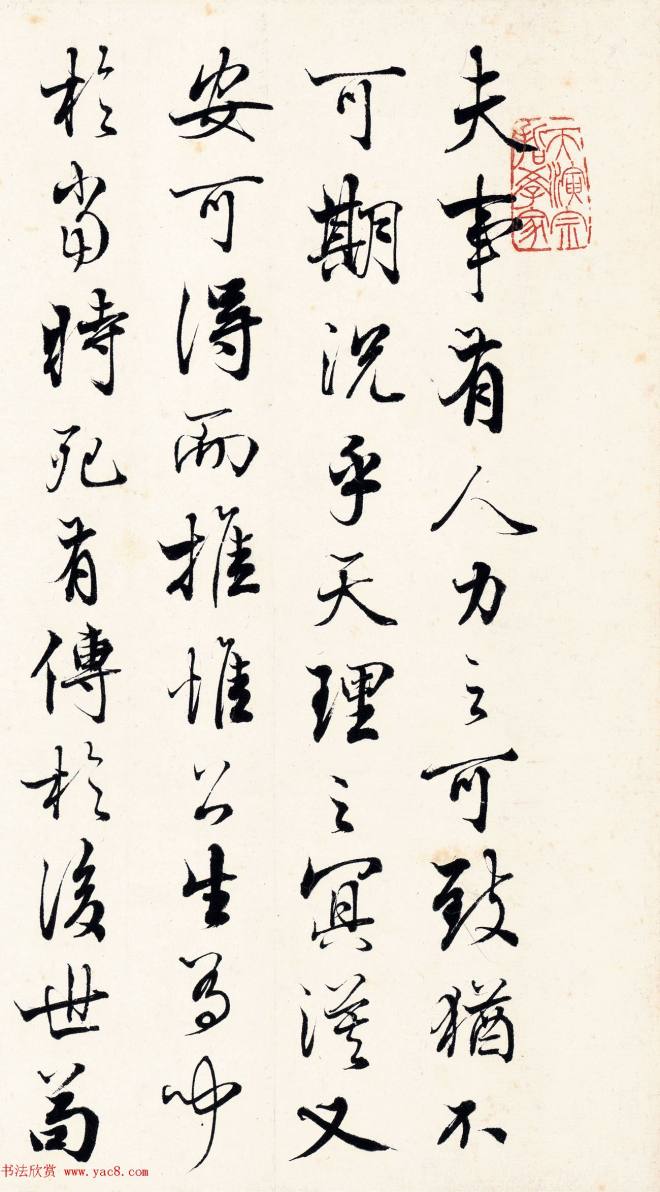 夫事有人力之可致猶不
可期況乎天理之冥漠又
安可得而推惟公生有聞
於當時死有傳於後世苟
天演宗
哲學家
书法欣赏 www.yac8.com